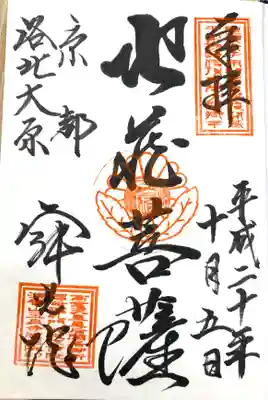 奉拝
平成二十年
十月五日
地蔵菩薩
京都
洛北大原
寂光院